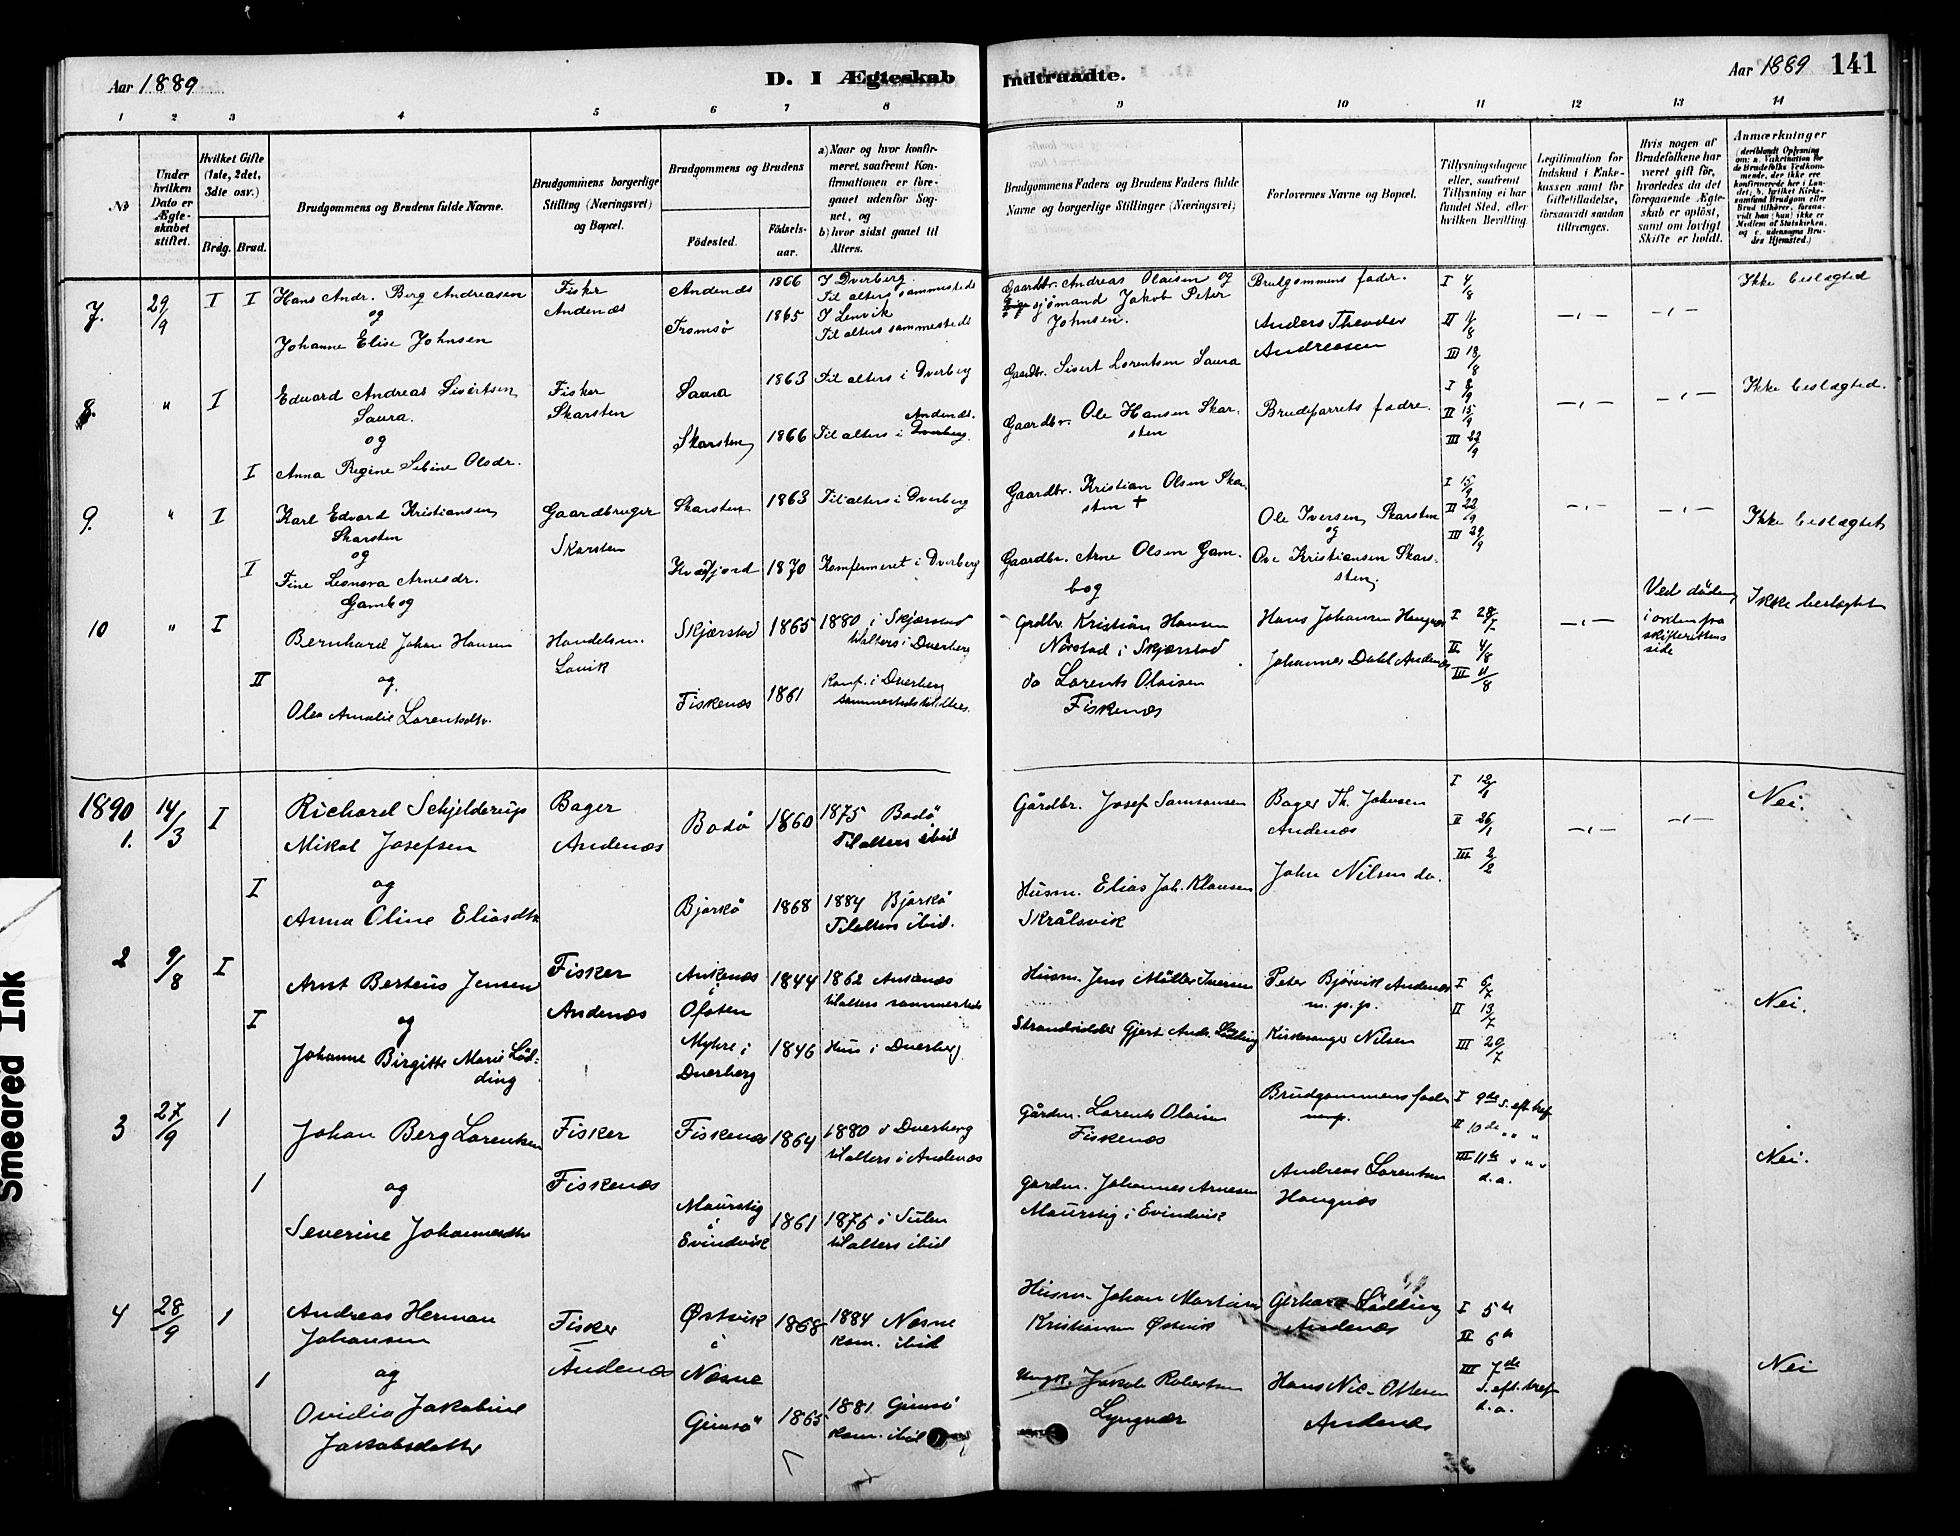 Aar 1889
D. I Ægteskab Indtraadte.
Aar 1889 141
1 2 3 4 5 6 7 8 9 10 11 12 13 14
No
Under hvilken Dato er Ægteskabet stiftet.
Hvilket Gifte (1ste, 2det, 3die osv.)
Brdg. Brud.
Brudgommens og Brudens fulde Navne.
Brudgommens borgerlige Stilling (Næringsvei) og Bopæl.
Brudgommens og Brudens
Födested.
Födsels-aar.
a) Naar og hvor konfirmeret, saafremt Konfirmationen er foregaaet udenfor Sognet, og
b) hvor sidst gaaet til Alters.
Brudgommens Faders og Brudens Faders fulde Navne og borgerlige Stillinger (Næringsvei)
Forlovernes Navne og Bopæl.
Tillysningsdagene eller, saafremt Tillysning ei har fundet Sted, efter hvilken Bevilling.
Legitimation for Indskud i Enkekassen samt for Giftetilladelse, forsaavidt saadan tiltrænges.
Hvis nogen af Brudefolkene har været gift för, hvorledes da det foregaaende Ægteskab er oplöst, samt om lovligt Skifte er holdt.
Anmærkninger
7. 29/9 I I
Hans Andr. Berg Andreasen
og
Johanne Elise Johnsen
Fisker
Andenæs
Andenæs 1866 I Dverberg
Til alters sammesteds
Tromsö 1865 I Lenvik
Til alters sammesteds
Gaardbr. Andreas Olaisen og
sjömand Jakob Peter
Johnsen.
Brudgommens fader.
Anders Theodor
Andreasen
I 4/8
II 11/8
III 18/8
—„— —„—
Ikke beslægted
8. " I
Edvard Andreas Sivertsen
Saura.
og
I Anna Regine Sebine Olsdr.
Fisker
Skarsten
Saura 1863 Til alters i Dverberg
Skarsten 1866 Til alters i Dverberg. Andenæs.
Gaardbr. Sivert Lorentsen Saura
Gaardbr. Ole Hansen Skar-
sten
Brudeparrets fædre.
I 8/9
II 15/9
III 22/9
—„— —„—
Ikke beslægted.
9. " I
Karl Edvard Kristiansen
Skarsten
og
I Fine Leonora Arnesdr.
Gambog
Gaardbruger
Skarsten
Skarsten 1863 Til alters i Dverberg
Kvæfjord 1870 Konfirmeret i Dverberg
Gaardbr. Kristian Olsen Skar-
sten +
Gaardbr. Arne Olsen Gam-
bog
Ole Iversen Skarsten
og
Ove Kristiansen Skar-
sten
I 15/9
II 22/9
III 29/9
—„— —„—
Ikke beslægtet
10 " I
Bernhard Johan Hansen
II og
Olea Amalie Lorentsdtr.
Handelsm.
Lovik
Skjærstad 1865 1880 i Skjærstad
til alters i Dverberg
Fiskenæs 1861 Konf. i Dverberg
sammesteds til alters.
Grdbr. Kristian Hansen
Nørstad i Skjærstad
do Lorents Olaisen
Fiskenæs
Hans Johansen Haugnæs
Johannes Dahl Andenæs
I 28/7
II 4/8
III 11/8
—„—
Ved döden
i orden fra
skifterettens
side
Ikke beslægtet
1890
1. 14/3 I
Richard Schjelderup
Mikal Josefsen
I og
Anna Oline Eliasdtr
Bager
Andenæs
Bodö 1860 1875 Bodö
Til alters ibid
Bjarkö 1868 1884 Bjarkö
Til alters ibid.
Gårdbr. Josef Samsonsen
Husm. Elias Joh. Klausen
Skrålsvik
Bager Th. Johnsen
Andenæs
John Nilsen do.
I 12/1
II 26/1
III 2/2
—„— —„—
Nei.
2 9/8 I
Arnt Berteus Jensen
I og
Johanne Birgitte Marie Löd-
ding
Fisker
Andenæs
Ankenæs
i
Ofoten
1844 1862 Ankenæs
til alters sammesteds
Myhre i
Dverberg
1846 Hun i Dverberg
Husm. Jens Möller Iversen
Strandsidder Gjert Andr. Lödding
Peter Bjørvik Andenæs
m.p.p.
Kirkesanger Nilsen
I 6/7
II 13/7
III 20/7
Nei.
3 27/9 1
Johan Berg Lorentsen
1 og
Severine Johannesdtr
Fisker
Fiskenæs
Fiskenæs 1864 1880 i Dverberg
til alters i Andenæs
Maurstig
i
Evindvik
1861 1876 i Sulen
til alters ibid
Gårdm. Lorents Olaisen
Fiskenæs
Gårdm. Johannes Arnesen
Maurstig i Evindvik
Brudgommens fader
Andreas Lorentsen
Haugnæs
I 9de S. eft. tref
II 10de " "
III 11te " " "
d.a.
Nei.
4 28/9 1
Andreas Herman
Johansen
og
1 Ovidia Jakobine
Jakobsdatter
Fisker
Andenæs
Østvik
i
Næsne
1868 1884 Nesne
kom. ibid
Gimsö 1865 1881 Gimsö
kom. ibid
Husm. Johan Martin
Kristiansen Østvik
Ungk. Jakob Robertsen
Lyngvær
Gerhard Lödding
Andenæs
Hans Nic. Ottesen
Andenæs
I 5te
II 6te
III 7de
S. eft. tref
d.a.
Nei
Smeared Ink